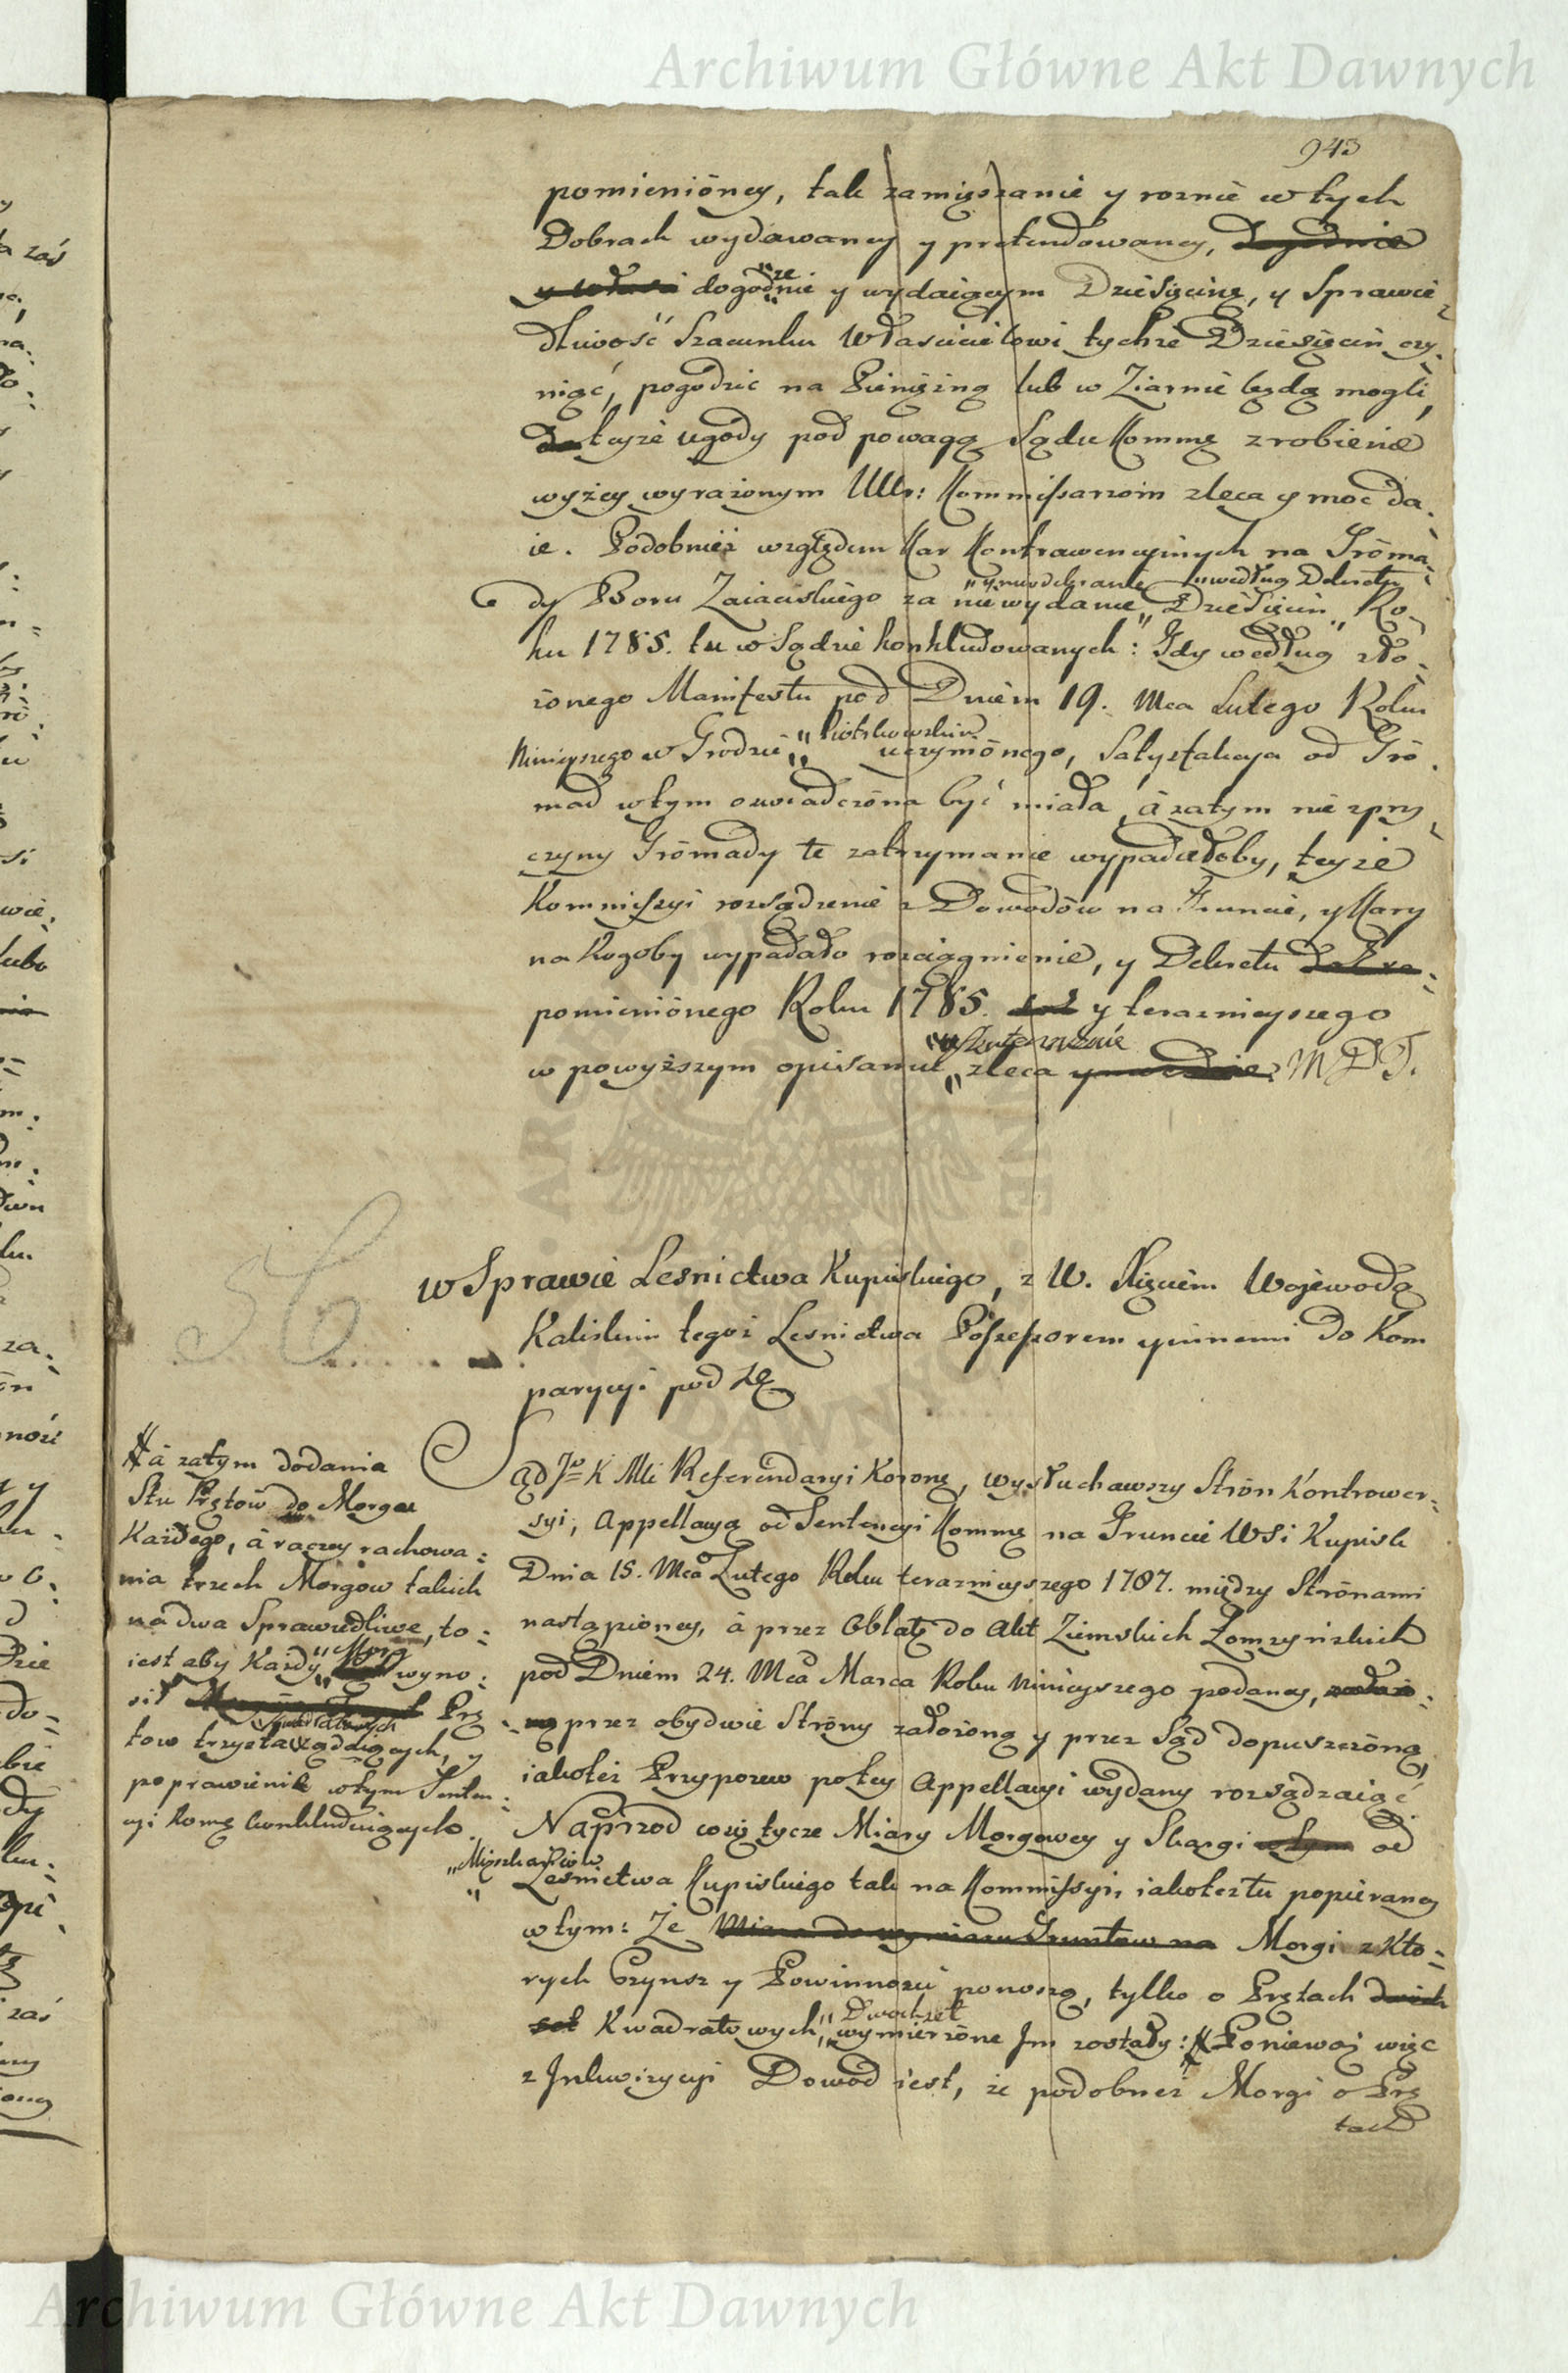 Archiwum Główne Akt Dawnych
943
pomienióney, tak zamięszanie y roznie w tych
Dobrach wydawaney y pretendowaney,
dogodnie "ze" y wydaiącym Dziesięcinę, y Sprawie-
dliwość Szacunku Właścicielowi tychże Dziesięcin czy-
niąć, pogodzic na Pieniężną lub w Ziarnie będą mogli,
teyże ugody pod powagą Sądu Kommę zrobienie
wyżey wyrażonym Ur: Kommissarzom zleca y moc da-
ie. Podobnież względem Kar Kontrawencyinych na Gróma-
"y nieodebranie "według Dekretu
dy Boru Zaiącskiego za niewydanie" Dziesięcin" Ro-
ku 1785. tu w Sądzie konkludowanych: Gdy według zło-
żonego Manifestu pod Dniem 19. Mca Lutego Roku
Ninieyszego w Grodzie "Piotrkowskim" uczyniónego, Satysfakcya od Gró-
mad w tym oswiadczóna być miała, à zatym nie z przy-
czyny Grómady te zatrzymanie wypadałoby, teyże
Kommissyi rozsądzenie z Dowodów na Gruncie, y Kary
na kogoby wypadało rozciągnienie, y Dekretu
pomieniónego Roku 1785. y teraznieyszego
w powyższym opisaniu "uskutecznienie" zleca MDT.
w Sprawie Lesnictwa Kupiskiego, z W. Wojewodą
Kaliskim tegoż Lesnictwa Possessorem y innemi do Kom
parycyi pod Lę
Sąd Jo K Mci Referendaryi Koronę, wysłuchawszy Strón Kontrower-
syi, Appellacyą od Sentencyi Kommę na Gruncie Wsi Kupisk
Dnia 15. Mca Lutego Roku teraznieyszego 1787. między Strónami
nastąpioney, à przez Oblatę do Akt Ziemskich Łomzyńskich
pod Dniem 24. Mca Marca Roku Ninieyszego podaney,
przez obydwie Stróny założoną y przez Sąd dopuszczóną,
iakoteż Przypozew po tey Appellacyi wydany rozsądzaiąć
Naprzod co się tycze Miary Morgowey y Skargi w tym od
"Mięszkańców"
Lesnictwa Kupiskiego tak na Kommissyi, iakoteż tu popieraney
w tym: Że Miara do wymiaru Gruntow na Morgi z Kto-
rych Czynsz y Powinnosci ponoszą, tylko o Prętach dwóch
set Kwadratowych, "Dwochset" wymierzóne Im zostały: # Poniewaz więc
z Inkwizycyi Dowod iest, że podobnież Morgi o Prę
tach
# à zatym dodania
Stu Prętów do Morga
Każdego, à raczey rachowa-
nia trzech Morgow takich
na dwa Sprawiedliwe, to-
iest aby Każdy "Morg" wyno-
sił Prę
tow trzysta Kwadratowych,
poprawienie w tym Senten-
cyi Komę konkluduiących.
Archiwum Główne Akt Dawnych